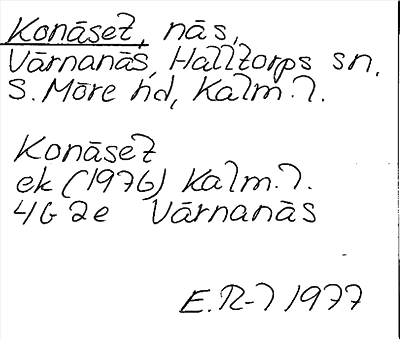 Konäset, näs,
Värnanäs, Halltorps sn,
S. Möre hd, Kalm. l.
Konäset
ek (1976) Kalm. l.
4G 2e Värnanäs
E. R-l 1977